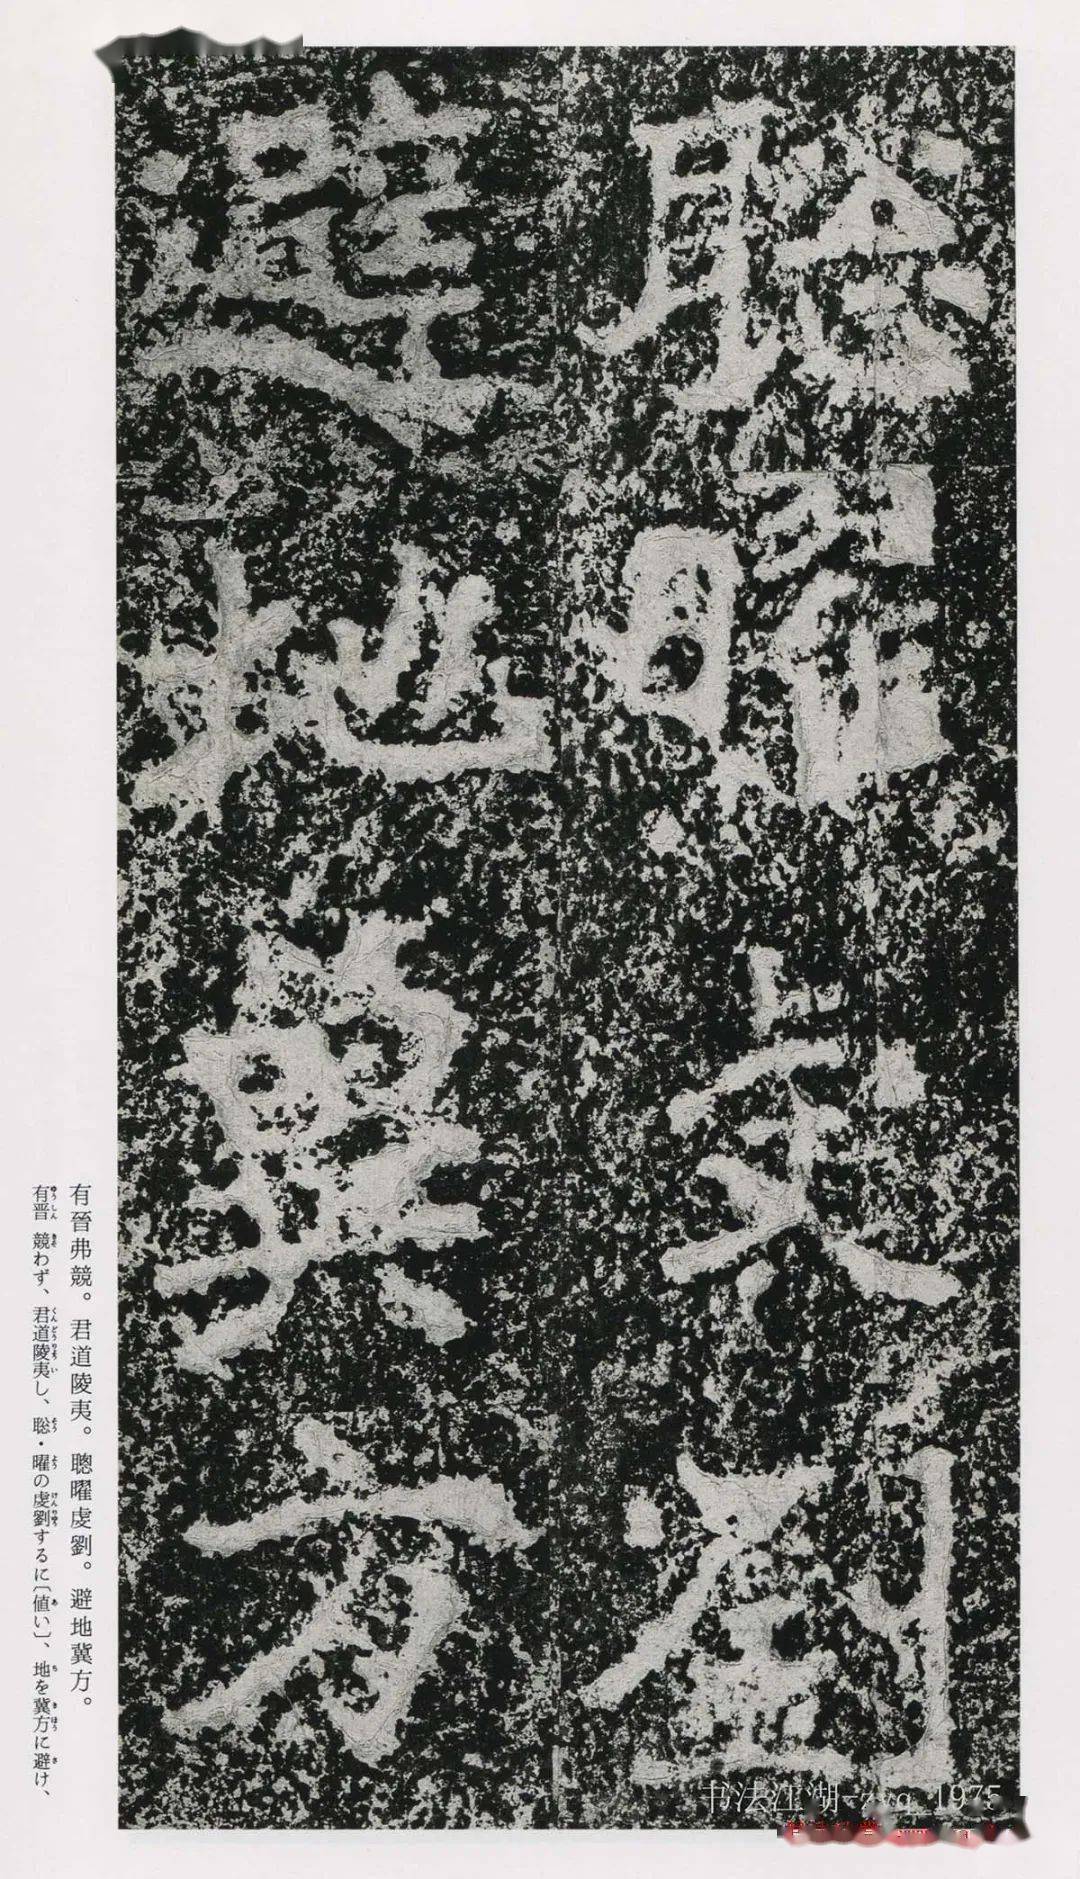 聰曜虔劉
避地冀方
有晉弗競。君道陵夷。聰曜虔劉。避地冀方。
有晋 競わず、君道陵夷し、聡・曜の虔劉するに〔値い〕、地を冀方に避け、
书法江湖-zyq_1975